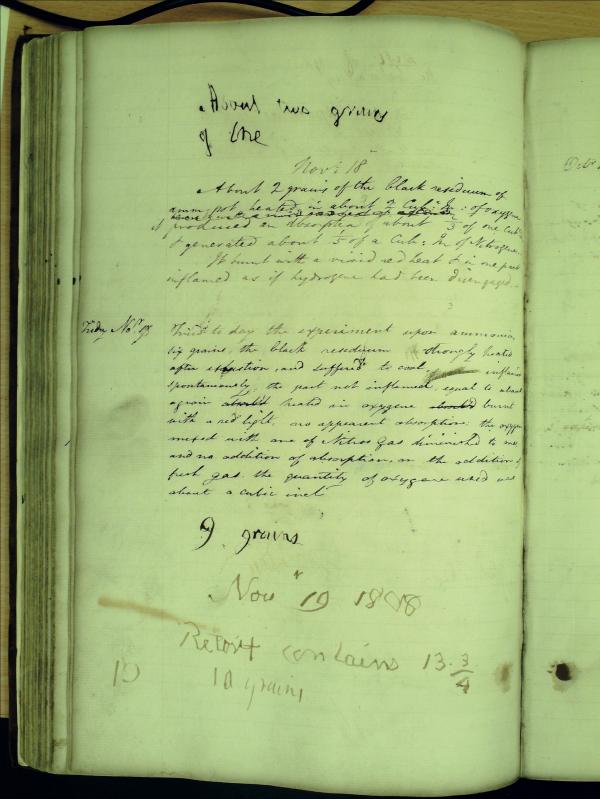 About two grains
of the
Novr. 18
About 2 grains of the black residuum of
amm: pot. heated in about 2 Cub: In: of oxygene
produced an absorption of about 1/3 of one Cub:
& generated about 1/5 of a Cub: In of Nitrogene.
It burnt with a vivid red heat & in one part
inflamed as if hydrogene had been disengaged.
Friday Novr. 18
Tried to day the experiment upon ammonia,
six grains, the black residuum strongly heated
after exhaustion, and suffered to cool. inflamed
spontaneously, the part not inflamed, equal to about
a grain heated in oxygene burnt
with a red light. no apparent absorption: the oxygene
mixed with one of Nitrous gas diminished to one
and no addition of absorption on the addition of
fresh gas. the quantity of oxygene used was
about a cubic inch
9 grains
Novr 19 1808
Retort contains 13. 3/4
10 10 grains